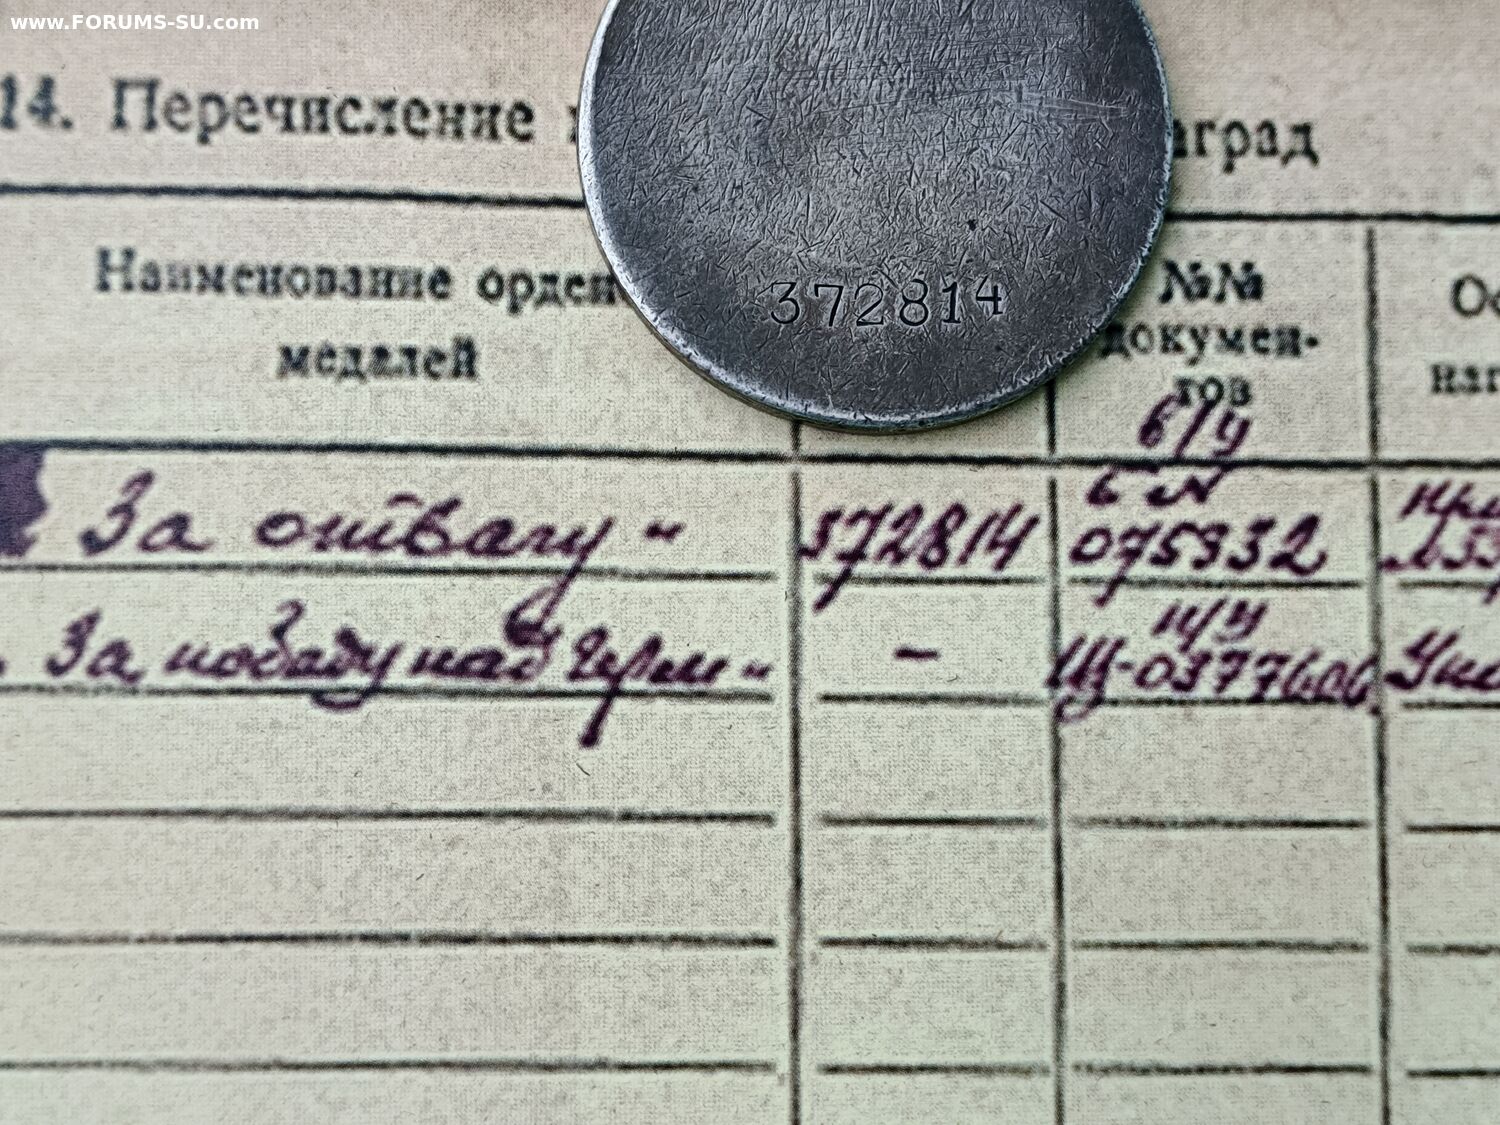 www.FORUMS-SU.com
14. Перечисление
аград
Наименование орден
медалей
№№
докумен-
тов
372814
б/у
За отвагу"
372814
075932
За победу над Герм"
—
Щ-0377606